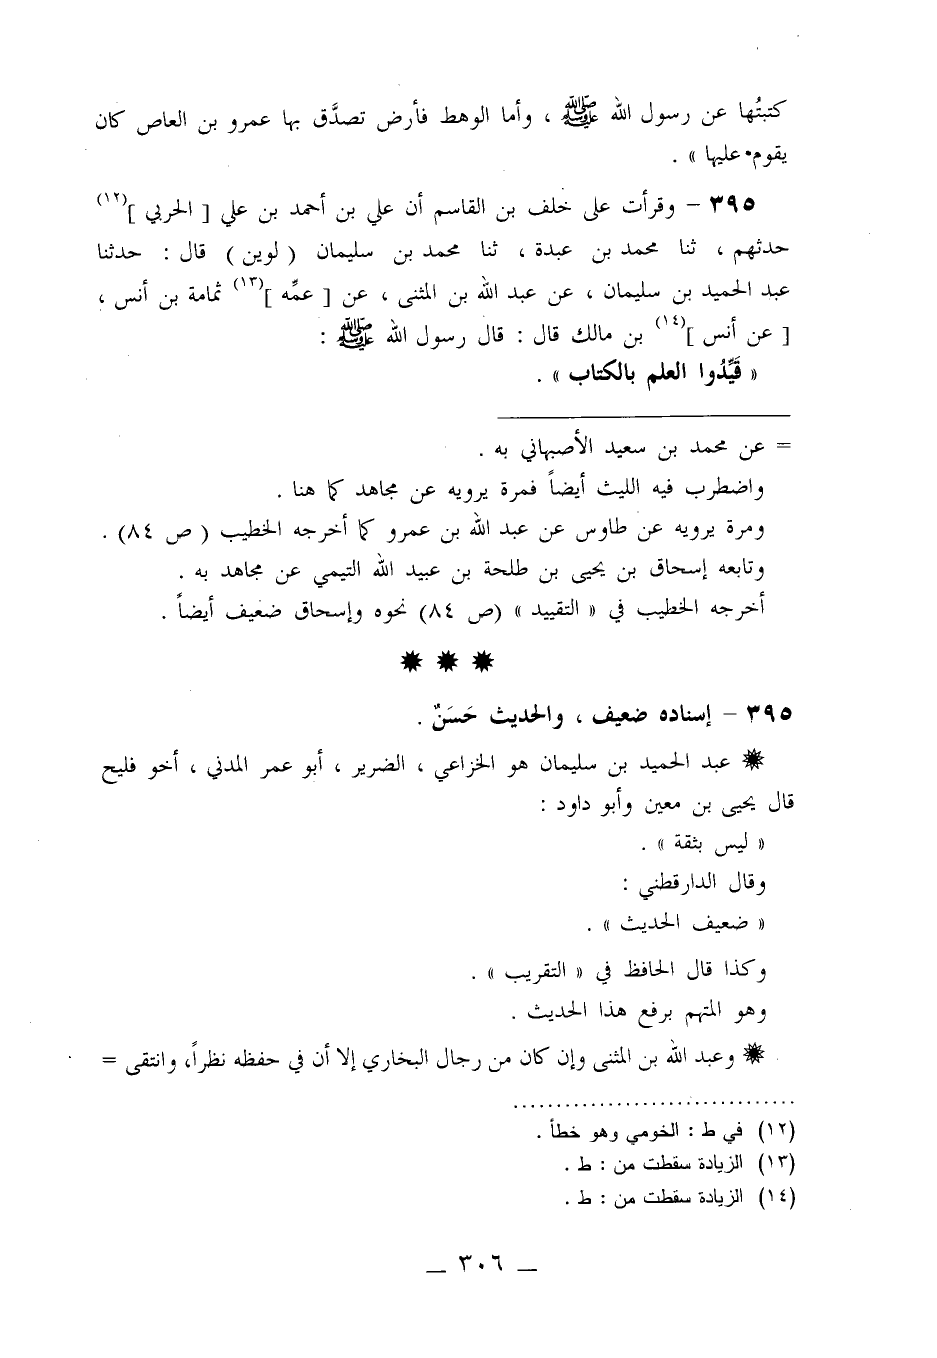 كتبتُها عن رسول الله ﷺ ، وأما الوهط فأرض تصدَّق بها عمرو بن العاص كان
يقوم عليها » .
٣٩٥ – وقرأت على خلف بن القاسم أن علي بن أحمد بن علي [ الحربي ](١٢)
حدثهم ، ثنا محمد بن عبدة ، ثنا محمد بن سليمان ( لوين ) قال : حدثنا
عبد الحميد بن سليمان ، عن عبد الله بن المثنى ، عن [ عمِّه ](١٣) ثمامة بن أنس ،
[ عن أنس ](١٤) بن مالك قال : قال رسول الله ﷺ :
« قَيِّدُوا العلم بالكتاب » .
= عن محمد بن سعيد الأصبهاني به .
واضطرب فيه الليث أيضاً فمرة يرويه عن مجاهد كما هنا .
ومرة يرويه عن طاوس عن عبد الله بن عمرو كما أخرجه الخطيب ( ص ٨٤) .
وتابعه إسحاق بن يحيى بن طلحة بن عبيد الله التيمي عن مجاهد به .
أخرجه الخطيب في « التقييد » (ص ٨٤) نحوه وإسحاق ضعيف أيضاً .
٣٩٥ – إسناده ضعيف ، والحديث حَسَنٌ .
عبد الحميد بن سليمان هو الخزاعي ، الضرير ، أبو عمر المدني ، أخو فليح
قال يحيى بن معين وأبو داود :
« ليس بثقة » .
وقال الدارقطني :
« ضعيف الحديث » .
وكذا قال الحافظ في « التقريب » .
وهو المتهم برفع هذا الحديث .
وعبد الله بن المثنى وإن كان من رجال البخاري إلا أن في حفظه نظراً، وانتقى =
(١٢) في ط : الخومي وهو خطأ .
(١٣) الزيادة سقطت من : ط .
(١٤) الزيادة سقطت من : ط .
— ٣٠٦ —